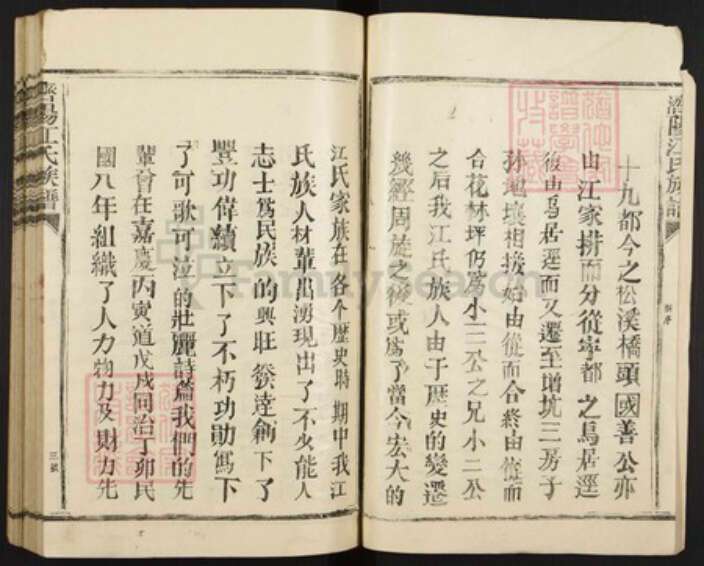 濟陽江氏族譜
十九都今之松溪橋頭國善公亦
山江家拼而分從寧都之馬居逕
後由馬居逕而又遷至增坑三房子
孫地壤相接始由從而合終由從而
合花林坪仍寫小三公之兄小二公
之后我江氏族人由于歷史的變遷
幾經周旋之後或爲了當今宏大的
江氏家族在各个歷史時期中我江
氏族人材輩出湧現出了不少能人
志士爲民族的興旺發達創下了
豐功偉績立下了不朽功勛寫下
了可歌可泣的壯麗詩篇我們的先
輩曾在嘉慶丙寅道戊戌同治丁卯民
國八年組織了人力物力及財力先
三號
濟陽江氏族譜
FamilySearch